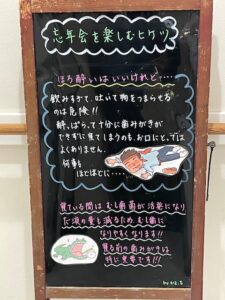 忘年会を楽しむヒケツ
ほろ酔いはいいけれど‥‥
飲みすぎて、吐いて物をつまらせるの
は危険!!
酔っぱらって十分に歯みがきが
できずに寝てしまうのも、お口にとっては
よくありません。
何事も
ほどほどに‥‥
寝ている間はむし歯菌が活発になり
だ液の量も減るため、むし歯に
なりやすくなります!!
寝る前の歯みがきは
特に重要です!!